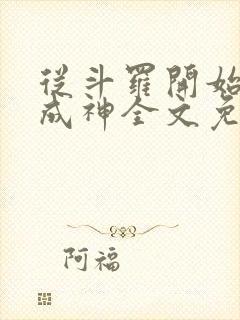 從斗羅開始
成神全文免
阿福